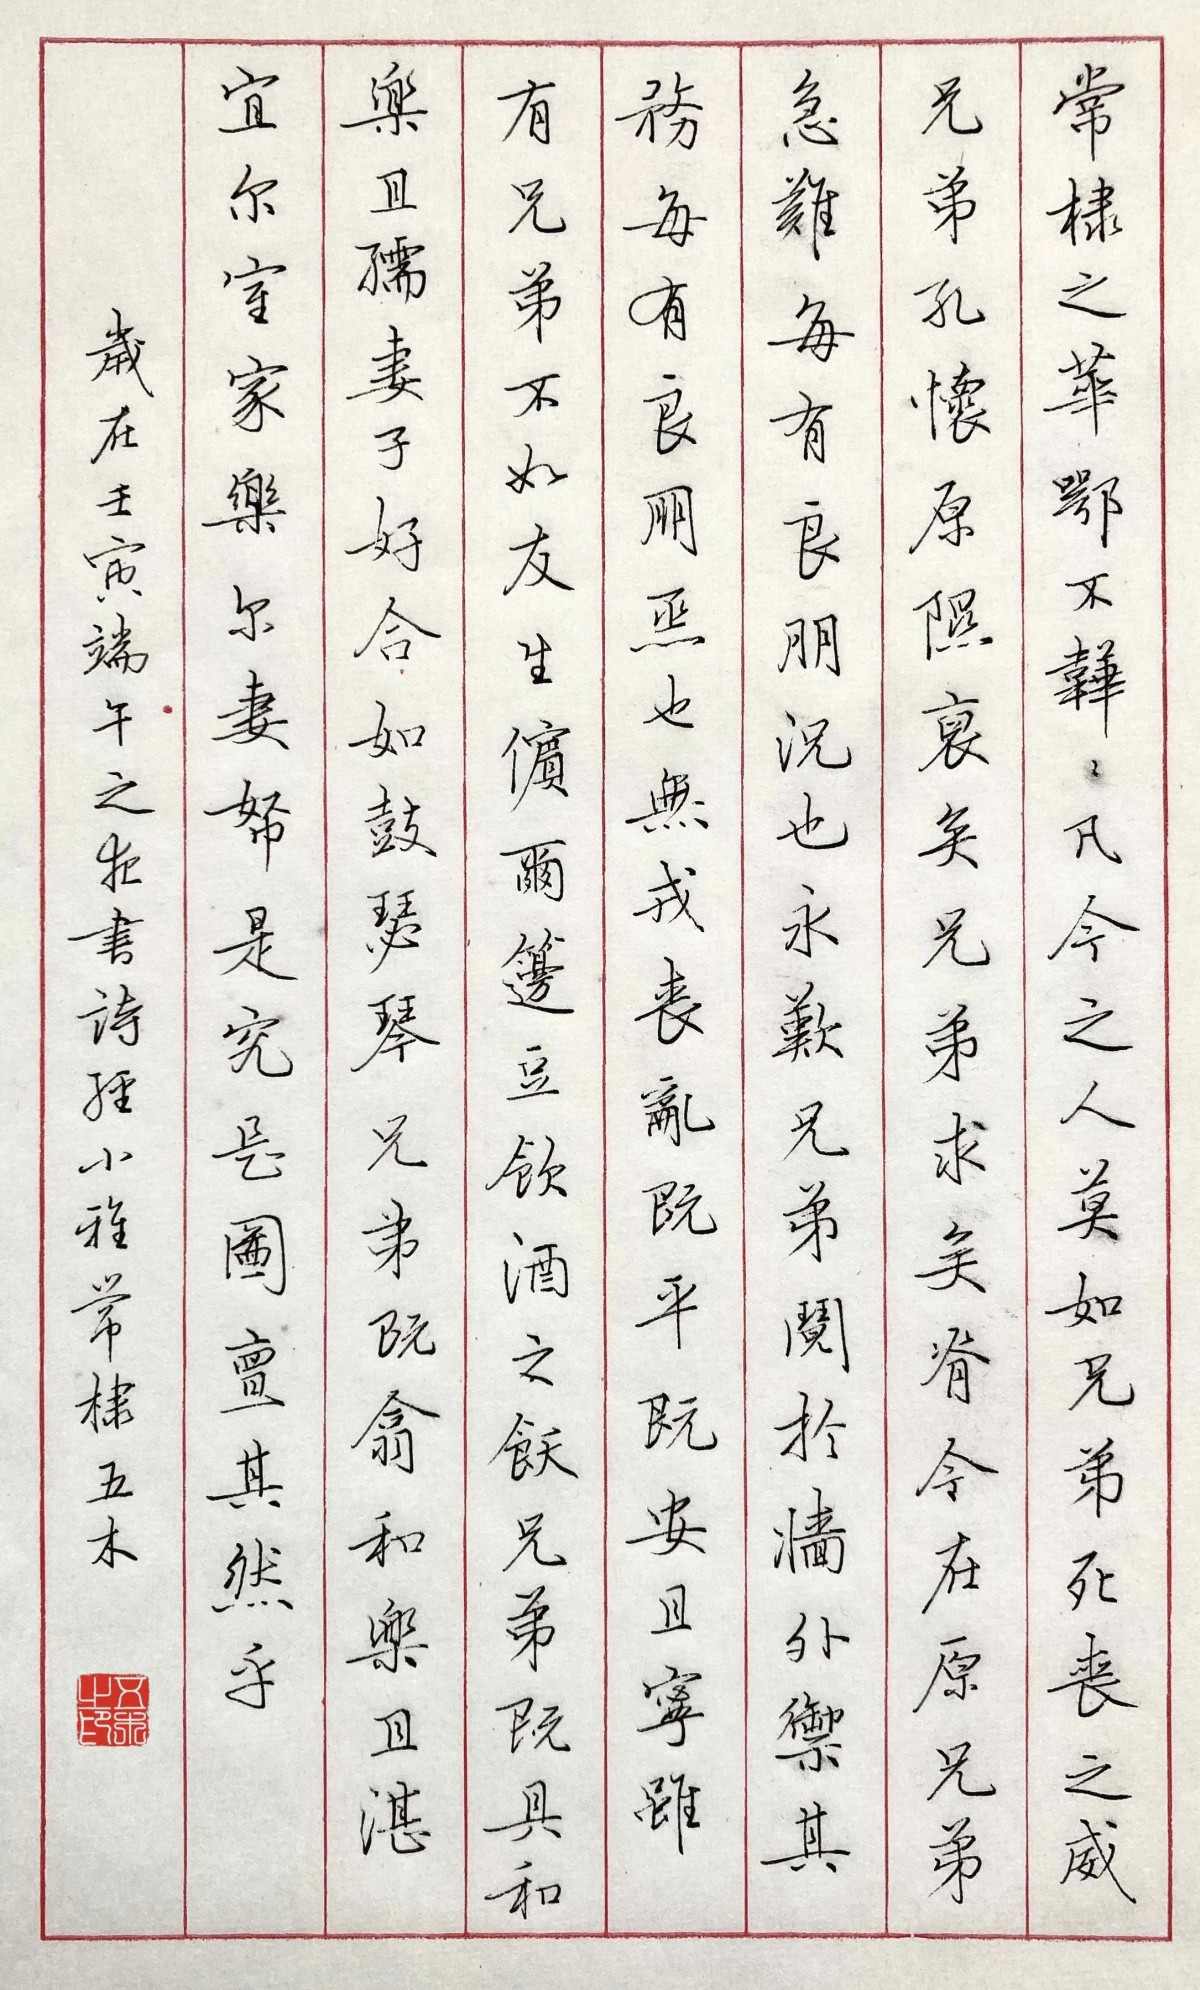 常棣之華鄂不韡〻凡今之人莫如兄弟死喪之威
兄弟孔懷原隰裒矣兄弟求矣脊令在原兄弟
急難每有良朋況也永歎兄弟鬩於牆外禦其
務每有良朋烝也無戎喪亂既平既安且寧雖
有兄弟不如友生儐爾籩豆飲酒之飫兄弟既具和
樂且孺妻子好合如鼓瑟琴兄弟既翕和樂且湛
宜尔室家樂尔妻帑是究是圖亶其然乎
歲在壬寅端午之夜書詩經小雅常棣五木
五木之印